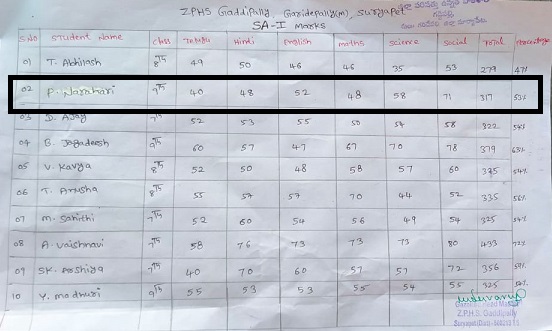 ZPHS Gaddipally, Garidepally(m), Suryapet
SA-I Marks
S.No Student Name Class Telugu Hindi English maths Science Social Total Percentage
01 T. Abhilash 8th 49 50 46 46 35 53 279 47%
02 P. Narahari 9th 40 48 52 48 58 71 317 53%
03 D. Ajay 7th 52 53 55 50 54 58 322 54%
04 B. Jagadeesh 9th 60 57 47 67 70 78 379 63%
05 V. Kavya 8th 52 50 48 58 57 60
06 T. Anusha 8th 55 57 57 70 44 52 335 56%
07 M. 7th 52 60 54 56 49 54 325 54%
08 A. Vaishnavi 7th 58 76 73 73 73 80 433 72%
09 SK. Arshiya 9th 40 70 60 57 57 72 356 59%
10 Y. Madhuri 9th 55 53 53 55 54 55 325
Head Master
Z.P.H.S. Gaddipally